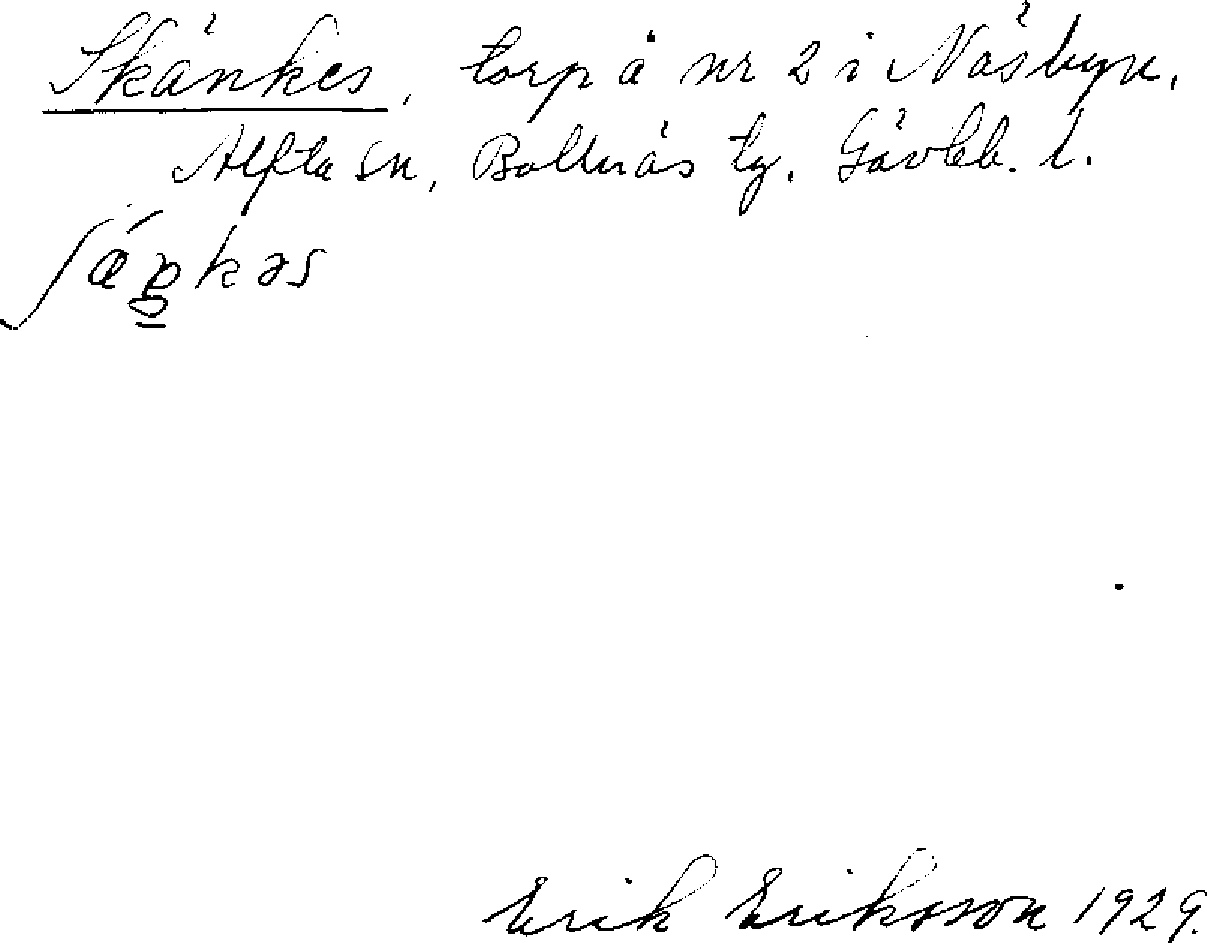 Skänkes, torp å nr 2 i Näsbyn.
Alfta sn, Bollnäs tg. Gävleb. l.
Erik Eriksson 1929.